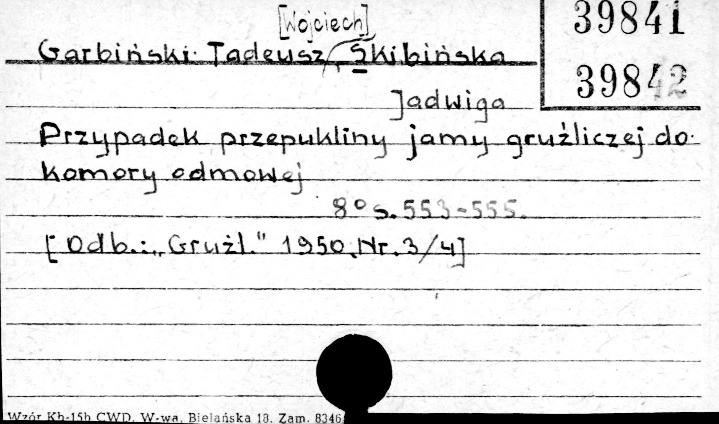 [Wojciech]
39841
Garbiński Tadeusz, Skibińska
39842
Jadwiga
Przypadek przepukliny jamy gruźliczej do
komory odmowej
8° s. 553-555.
[Odb.: „Gruźl." 1950, Nr. 3/4]
Wzór Kb-15b CWD. W-wa, Bielańska 18. Zam. 8346